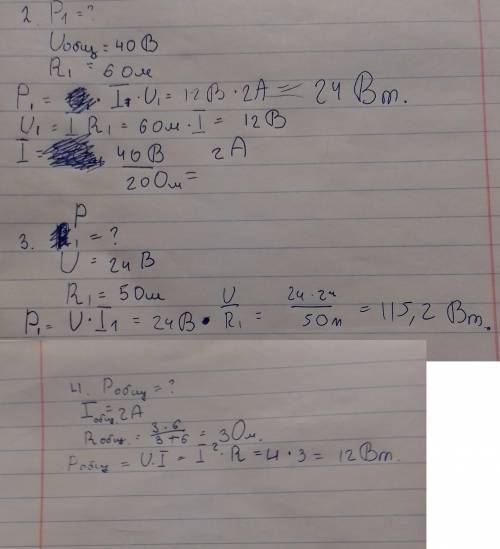 2. P₁ = ?
Uобщ = 40В
R₁ = 6Ом
P₁ = · I₁ · U₁ = 12В · 2А = 24 Вт.
U₁ = I R₁ = 6Ом · I = 12В
I = 40В/20Ом = 2А
3. P₁ = ?
U = 24В
R₁ = 5Ом
P₁ = U · I₁ = 24В · U/R₁ = 24·24/5Ом = 115,2 Вт.
4. Pобщ = ?
Iобщ = 2А
Rобщ = 3·6/3+6 = 3Ом.
Pобщ = U·I = I² · R = 4·3 = 12Вт.